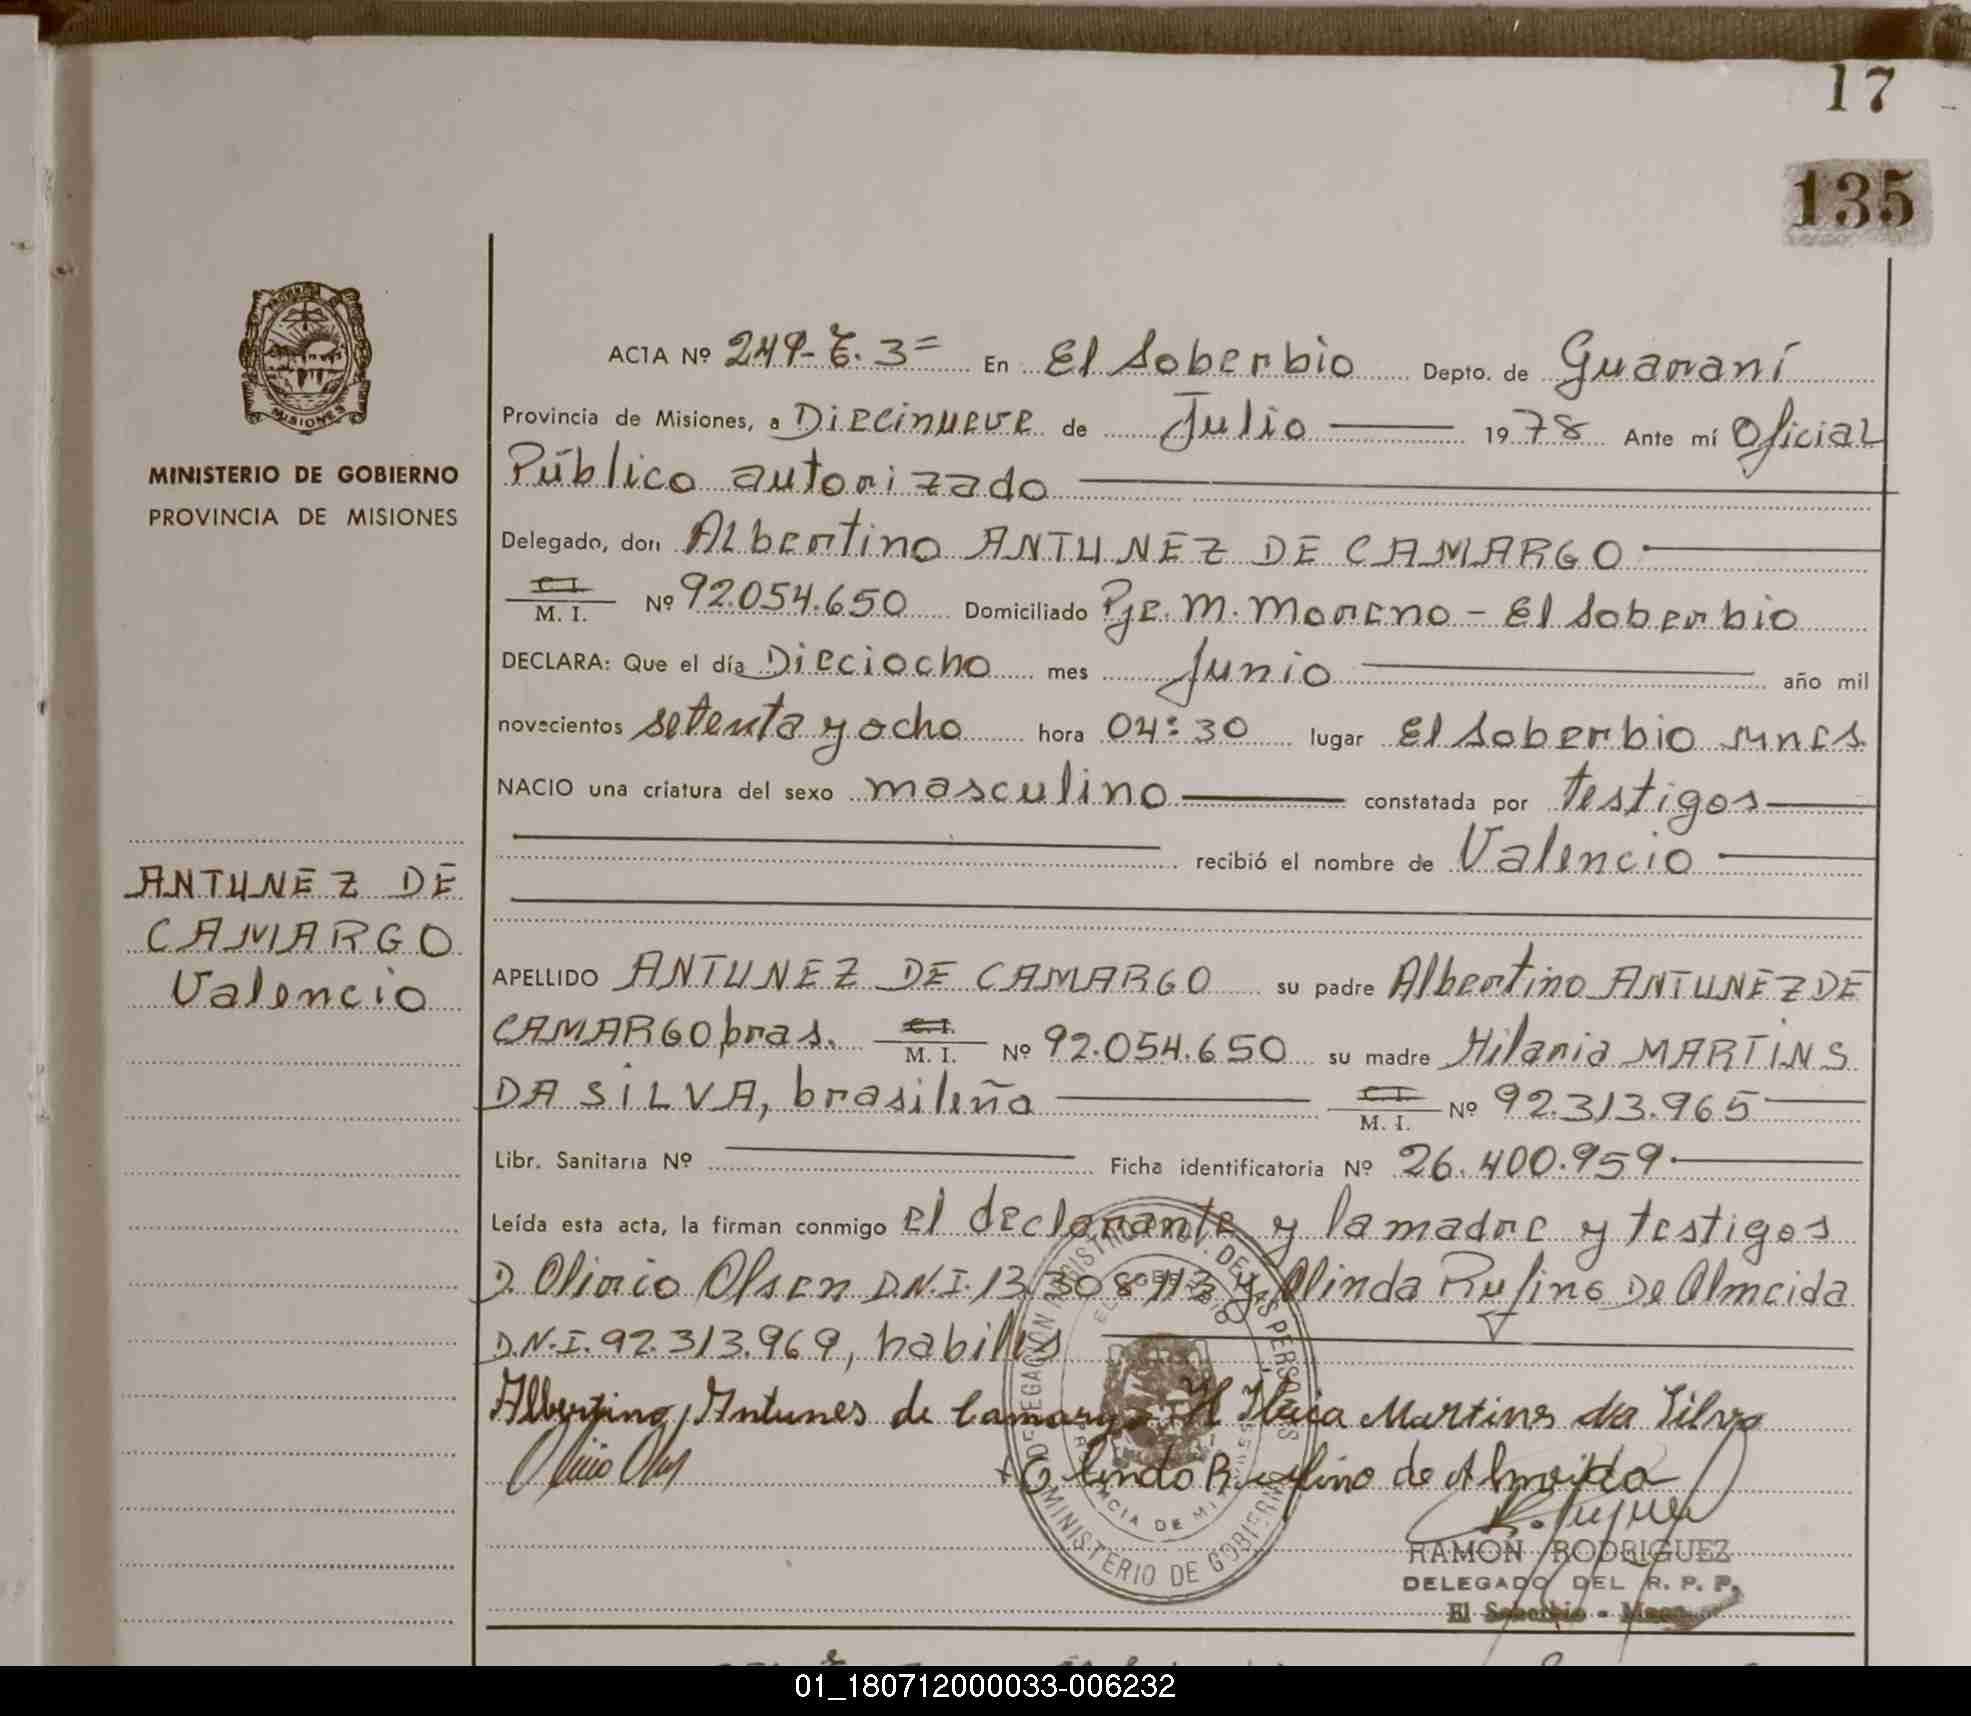 17
135
ACTA Nº 249-T. 3= En El Soberbio Depto. de Guaraní
Provincia de Misiones, a Diecinueve de Julio 1978 Ante mí Oficial
Público autorizado
MINISTERIO DE GOBIERNO
PROVINCIA DE MISIONES
MISIONES
Delegado, don Albertino ANTUNEZ DE CAMARGO
C.I.
M. I. Nº 92.054.650 Domiciliado Pje. M. Moreno - El Soberbio
DECLARA: Que el día Dieciocho mes Junio año mil
novecientos setenta y ocho hora 04:30 lugar El Soberbio
NACIO una criatura del sexo masculino constatada por testigos
recibió el nombre de Valencio
ANTUNEZ DE
CAMARGO
Valencio
APELLIDO ANTUNEZ DE CAMARGO su padre Albertino ANTUNEZ DE
CAMARGO bras. C.I. M. I. Nº 92.054.650 su madre Hilaria MARTINS
DA SILVA, brasileña C.I. M. I. Nº 92.313.965
Libr. Sanitaria Nº Ficha identificatoria Nº 26.400.959
Leída esta acta, la firman conmigo el declarante y la madre y testigos
D. Olirio Olsen D.N.I. 13.308.113 y Olinda Rufino De Almeida
D.N.I. 92.313.969, habiles
Albertino Antunes de Camargo Martins da Silva
Olindo Rufino de Almeida
DELEGACION REGISTRO PROV. DE LAS PERSONAS
EL SOBERBIO
PROVINCIA DE MISIONES
MINISTERIO DE GOBIERNO
RAMON RODRIGUEZ
DELEGADO DEL R. P. P.
El Soberbio - Mnes.
01_180712000033-006232